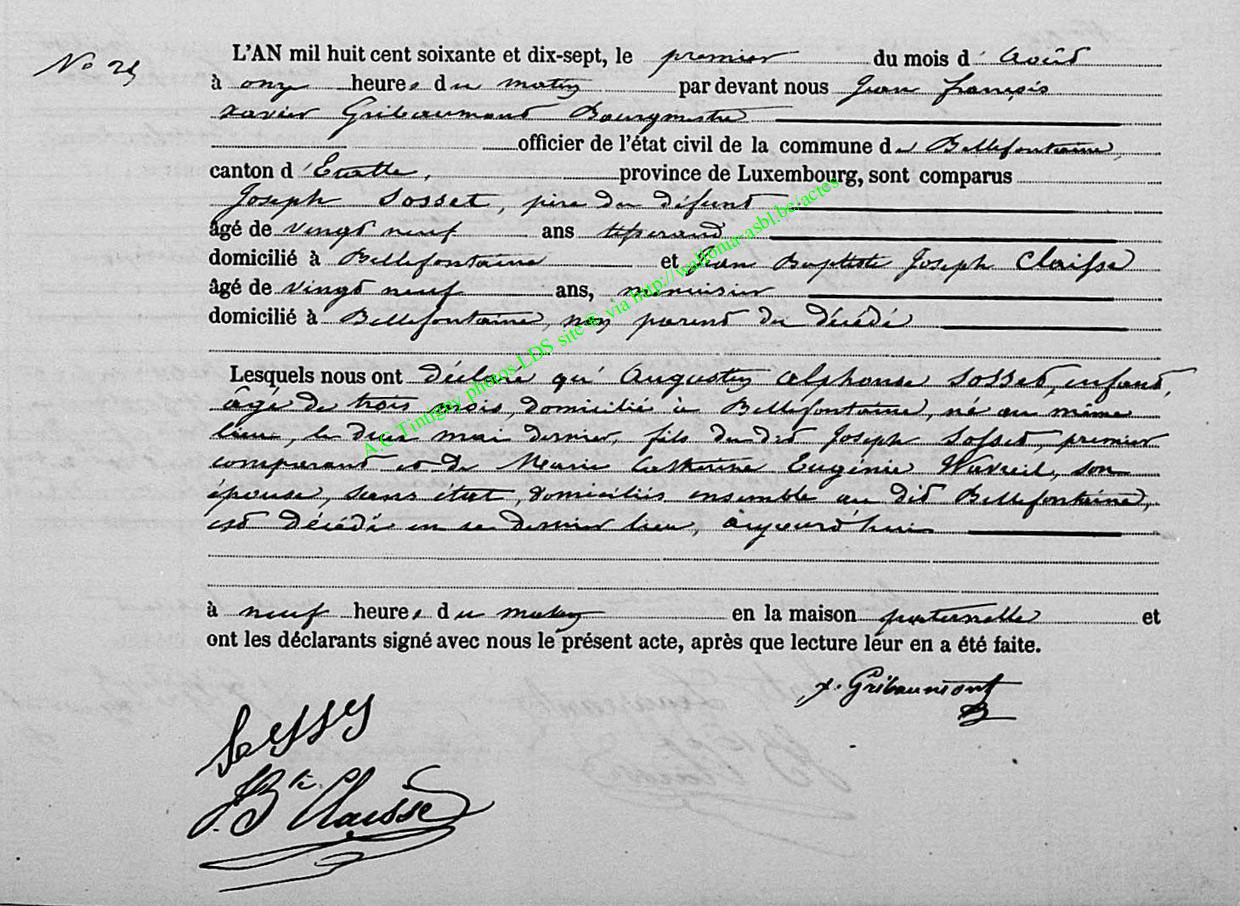 L'AN mil huit cent soixante et dix-sept, le premier du mois d'Août
à onze heures du matin par devant nous Jean François
Xavier Gribaumont Bourgmestre
officier de l'état civil de la commune de Bellefontaine,
canton d'Etalle, province de Luxembourg, sont comparus
Joseph Sosset, père du défunt
âgé de vingt neuf ans tisserand
domicilié à Bellefontaine et Jean Baptiste Joseph Claisse
âgé de vingt neuf ans, menuisier
domicilié à Bellefontaine, non parent du décédé
Lesquels nous ont déclaré qu'Augustin Alphonse Sosset, enfant,
âgé de trois mois, domicilié à Bellefontaine, né au même
lieu, le deux mai dernier, fils du dit Joseph Sosset, premier
comparant et de Marie Catherine Eugénie, son
épouse, sans état, domiciliés ensemble au dit Bellefontaine,
est décédé en ce dernier lieu, aujourd'hui
à neuf heures du matin en la maison paternelle et
ont les déclarants signé avec nous le présent acte, après que lecture leur en a été faite.
x. Gribaumont
J. Bte Claisse
A.C.Tintigny photos LDS site © via http://wallonia-asbl.be/actes